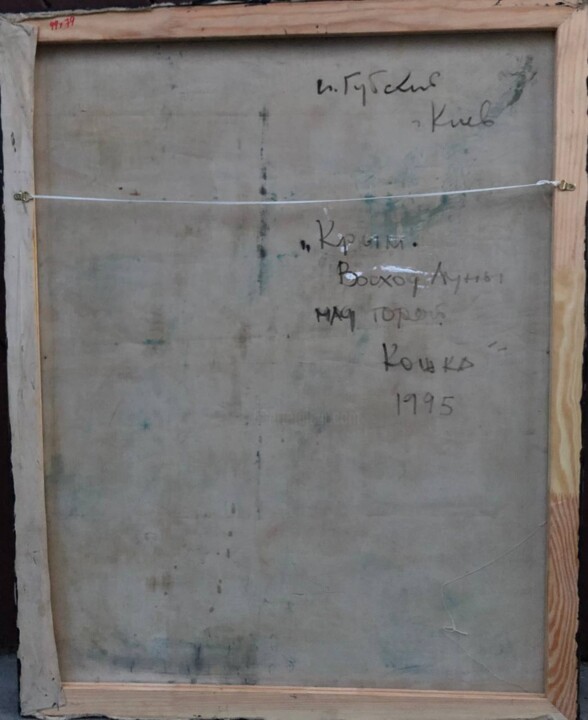 99x79
и. Губский
г. Киев
„Крым.
Восход Луны
над горой
Кошка"
1995